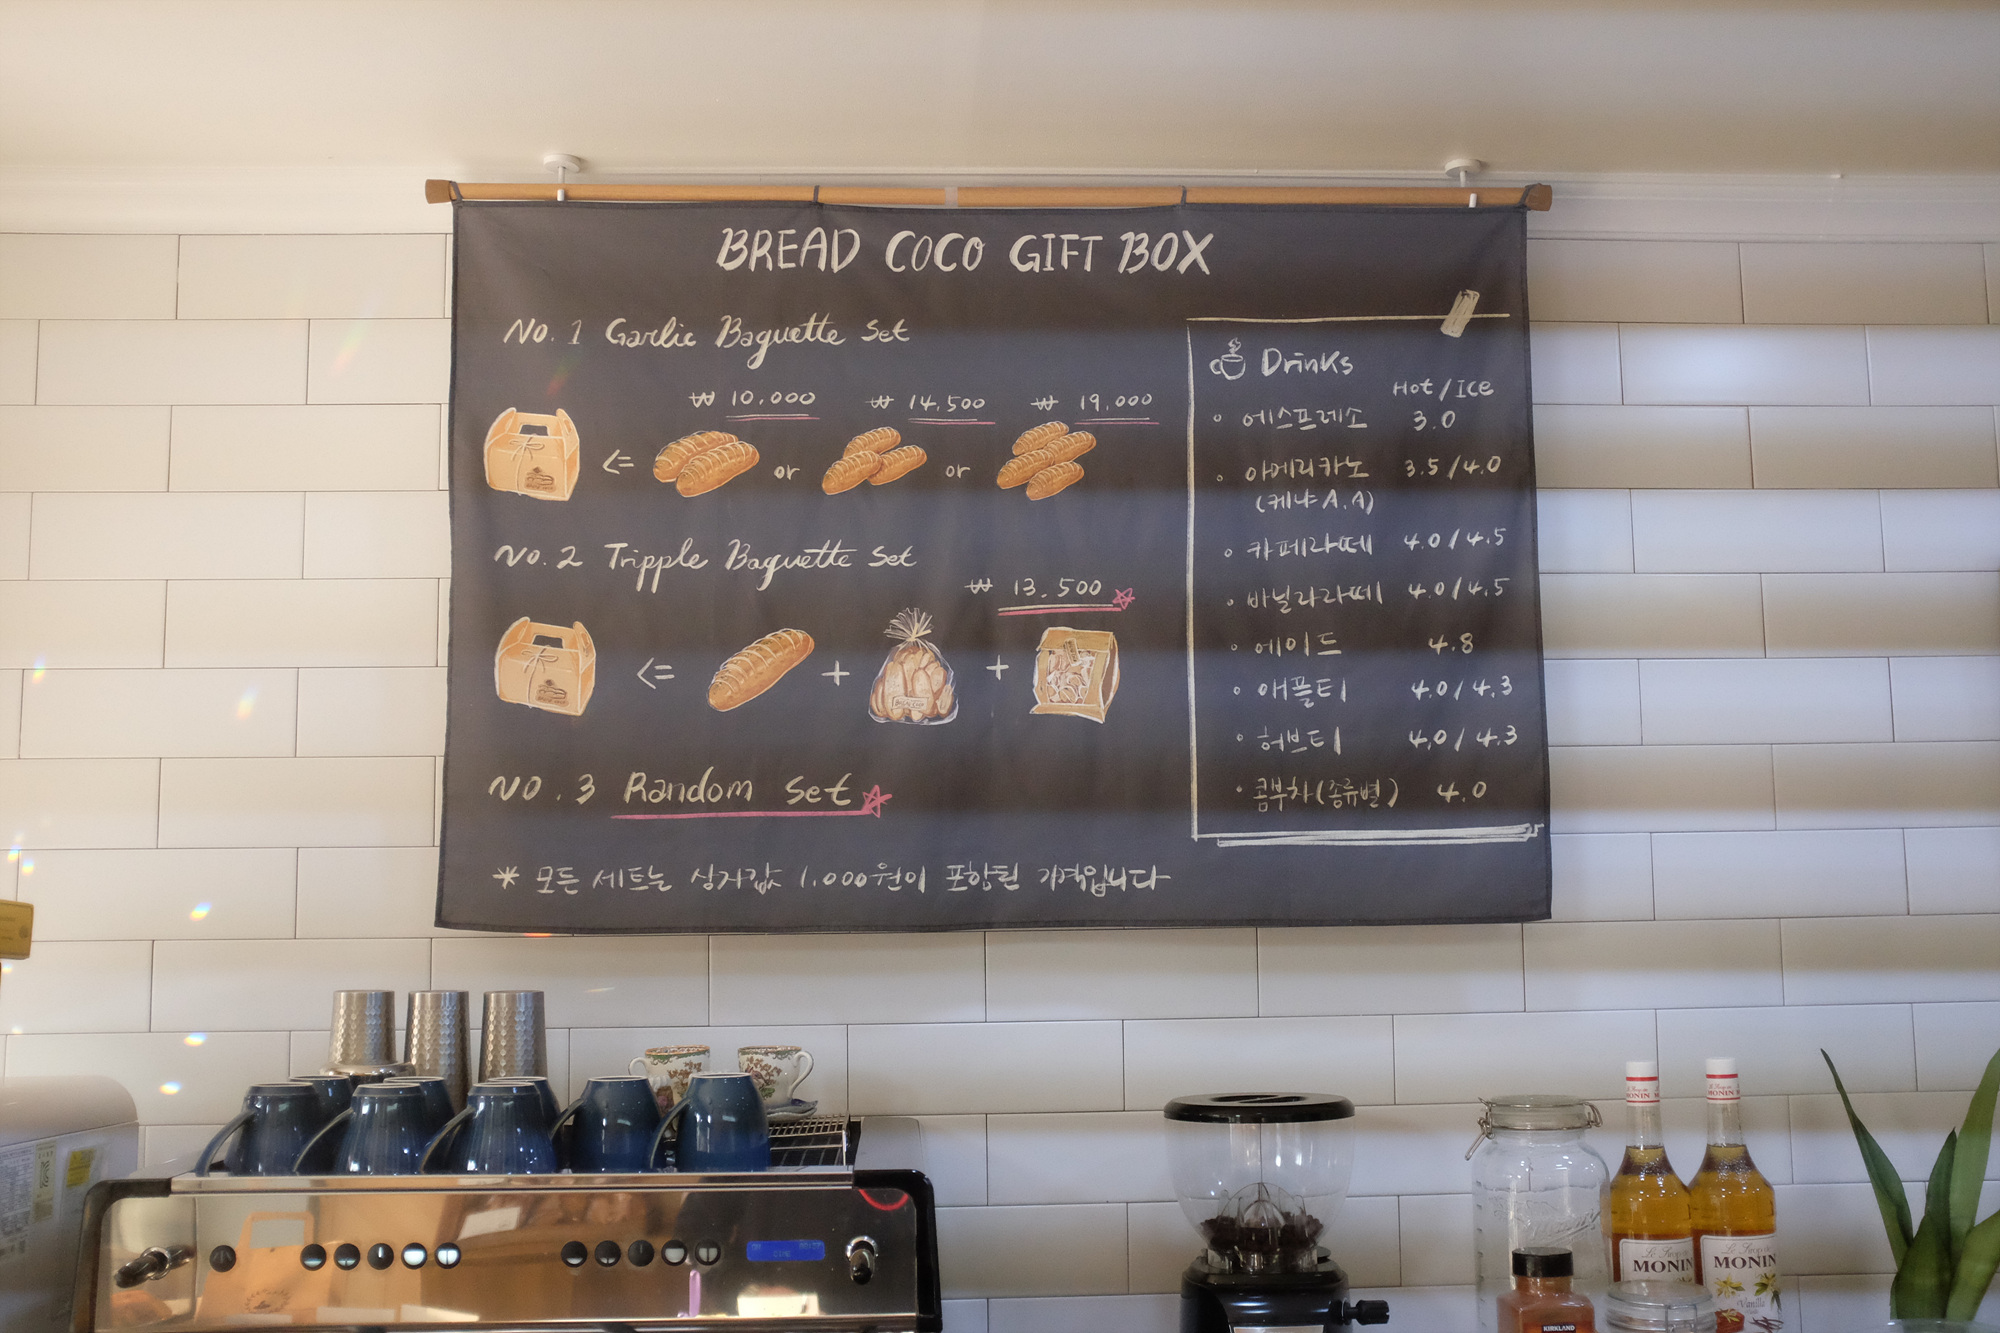 BREAD COCO GIFT BOX
No. 1 Garlic Baguette Set
₩ 10,000 ₩ 14,500 ₩ 19,000
<= or or
No. 2 Tripple Baguette Set
₩ 13,500
<= + +
NO. 3 Random Set
* 모든 세트는 상자값 1,000원이 포함된 가격입니다
Drinks
Hot / ICE
• 에스프레소 3.0
• 아메리카노 3.5 / 4.0
(케냐 A.A)
• 카페라떼 4.0 / 4.5
• 바닐라라떼 4.0 / 4.5
• 에이드 4.8
• 애플티 4.0 / 4.3
• 허브티 4.0 / 4.3
• 콤부차(종류별) 4.0
MONIN
MONIN
Le Sirop de
MONIN
Le Sirop de
MONIN
Vanilla
KIRKLAND